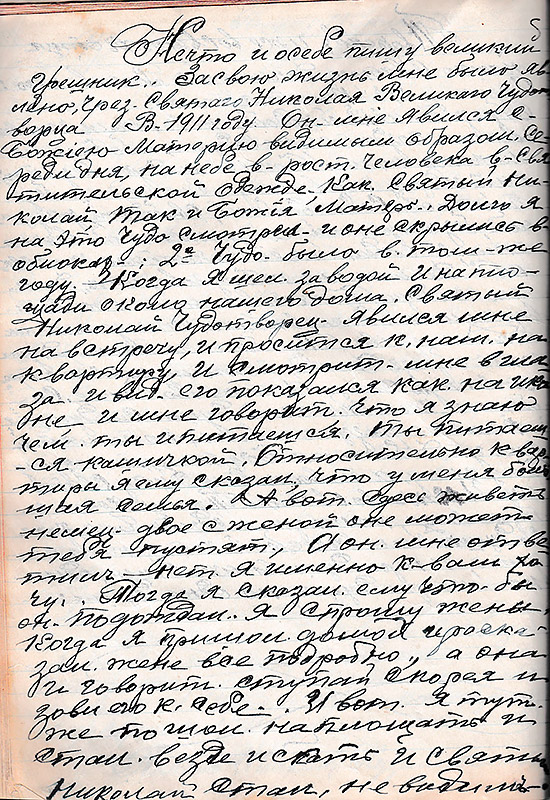 Нечто и о себе пишу великий
грешник.. За свою жизнь мне было яв
лено, чрез. Святаго Николая Великаго Чудот
ворца В-1911 году. Он-мне явился с-
Божіею Материю видимым образом. Се
реди дня, на небе в-рост. человека в-свя
тительской Одежде. Как Святый Ни-
колай так и Божія Матерь. Долго я
на это чудо смотрел- и оне скрылись в-
облоках; 2е Чудо. было в том-же
году. Когда я шел. за водой и на пло-
щади около нашего дома. Святый
Николай Чудотворец. явился мне
на встречу, и просится к. нам. на
квартиру и смотрит- мне в гла
за и вид- его показался как. на ико
не и мне говорит. Что я знаю
чем. ты и питаешся. Ты питаеш
-ся кашичкой. Относительно квар
тиры я ему сказал, что у меня боль
шая семья. А вот здесь живеть
немец двое с женой оне может
тебя пустят., А он. мне отве
тил нет я именно к-вам хо
чу. Тогда я сказал. ему что-бы
он. подождал. я спрошу жены.
Когда я пришол домой и роска-
зал. жене все подробно, а она
и говорит. ступай скорея и
зови его к. себе. И вот. я тут-
же пошол. на площать и
стал. везде искать и Святы
Николай стал, не видим-